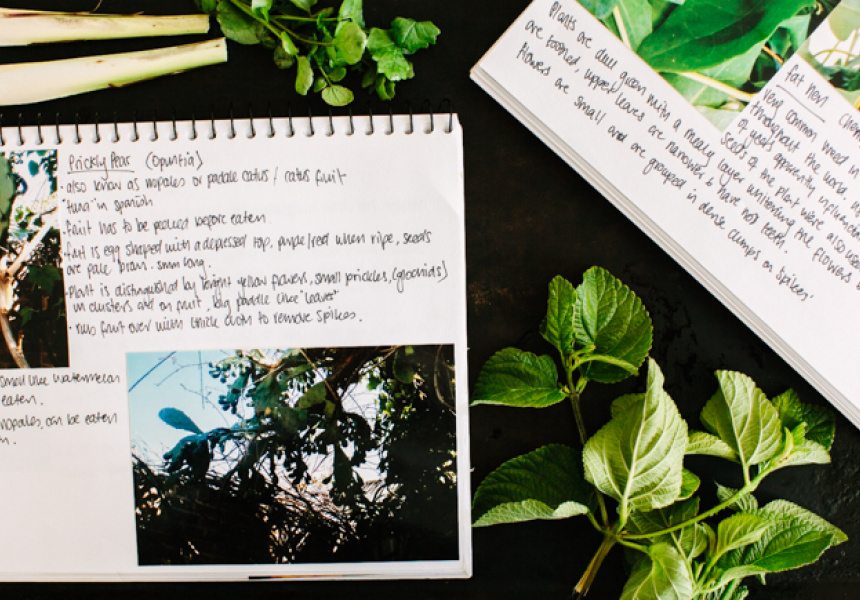 Prickly Pear (Opuntia)
· also know as nopales or paddle catus / catus fruit
"tuna" in spanish
· fruit has to be peeled before eaten
· fruit is egg shaped with a depressed top, purple/red when ripe, seeds
are pale brown. 5mm long.
· Plant is distinguished by bright yellow flowers, small prickles, (glochids)
in clusters and on fruit, big paddle like "leaves"
· rub fruit over with thick cloth to remove spikes.
small like watermelon
eaten.
nopales, can be eaten
Plants are dull green with a mealy layer whitening the flowers
are toothed, upper leaves are narrower & have no teeth.
flowers are small and are grouped in dense clumps on spikes.
Fat Hen
Very common weed in
throughout the world.
of uses apparently
seeds of the plant were also used